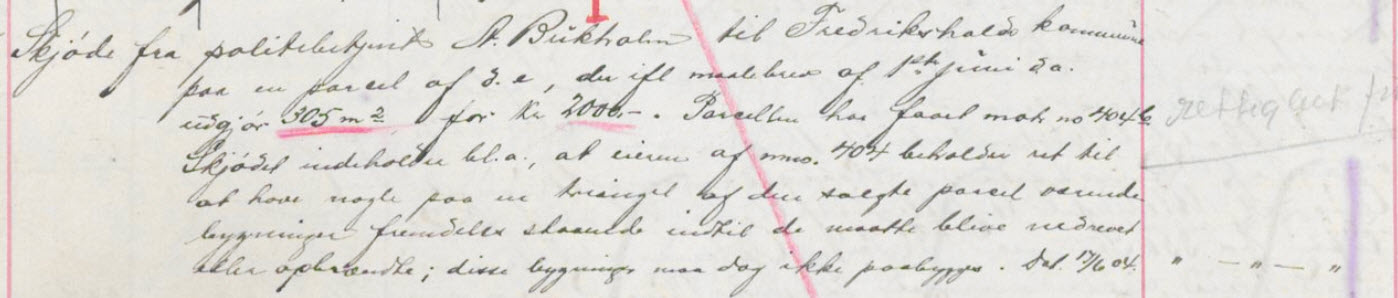 Skjøde fra politibetjent St. Bükholm til Fredrikshalds kommüne
paa en parcel af d. e, der ifl maalebrev af 1ste jüni d.a.
üdgjør 305 m² for Kr 2000,- . Parcellen har faaet matr no 404b rettighet
Skjødet indeholder bl.a., at eieren af mno. 404 beholder ret til
at have nogle paa en triangel af den solgte parcel værende
bygninger fremdeles staaende indtil de maatte blive nedrevet
eller opbrændte; disse bygninger maa dog ikke paabygges. Dat. 17/6 04. " — " — "